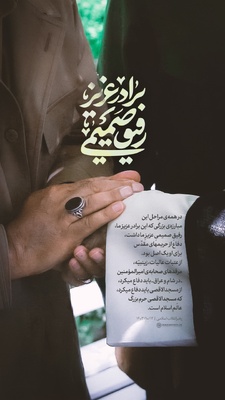 برادر عزیز
رفیق صمیمی
در همه‌ی مراحل این
مبارزه‌ی بزرگی که این برادر عزیز ما،
رفیق صمیمی عزیز ما داشت،
دفاع از حریمهای مقدّس
برای او یک اصل بود.
از عتبات عالیات، زینبیّه،
مرقدهای صحابه‌ی امیرالمؤمنین
در شام و عراق، باید دفاع میکرد،
از مسجدالاقصی باید دفاع میکرد،
که مسجدالاقصی حرم بزرگ
عالم اسلام است.